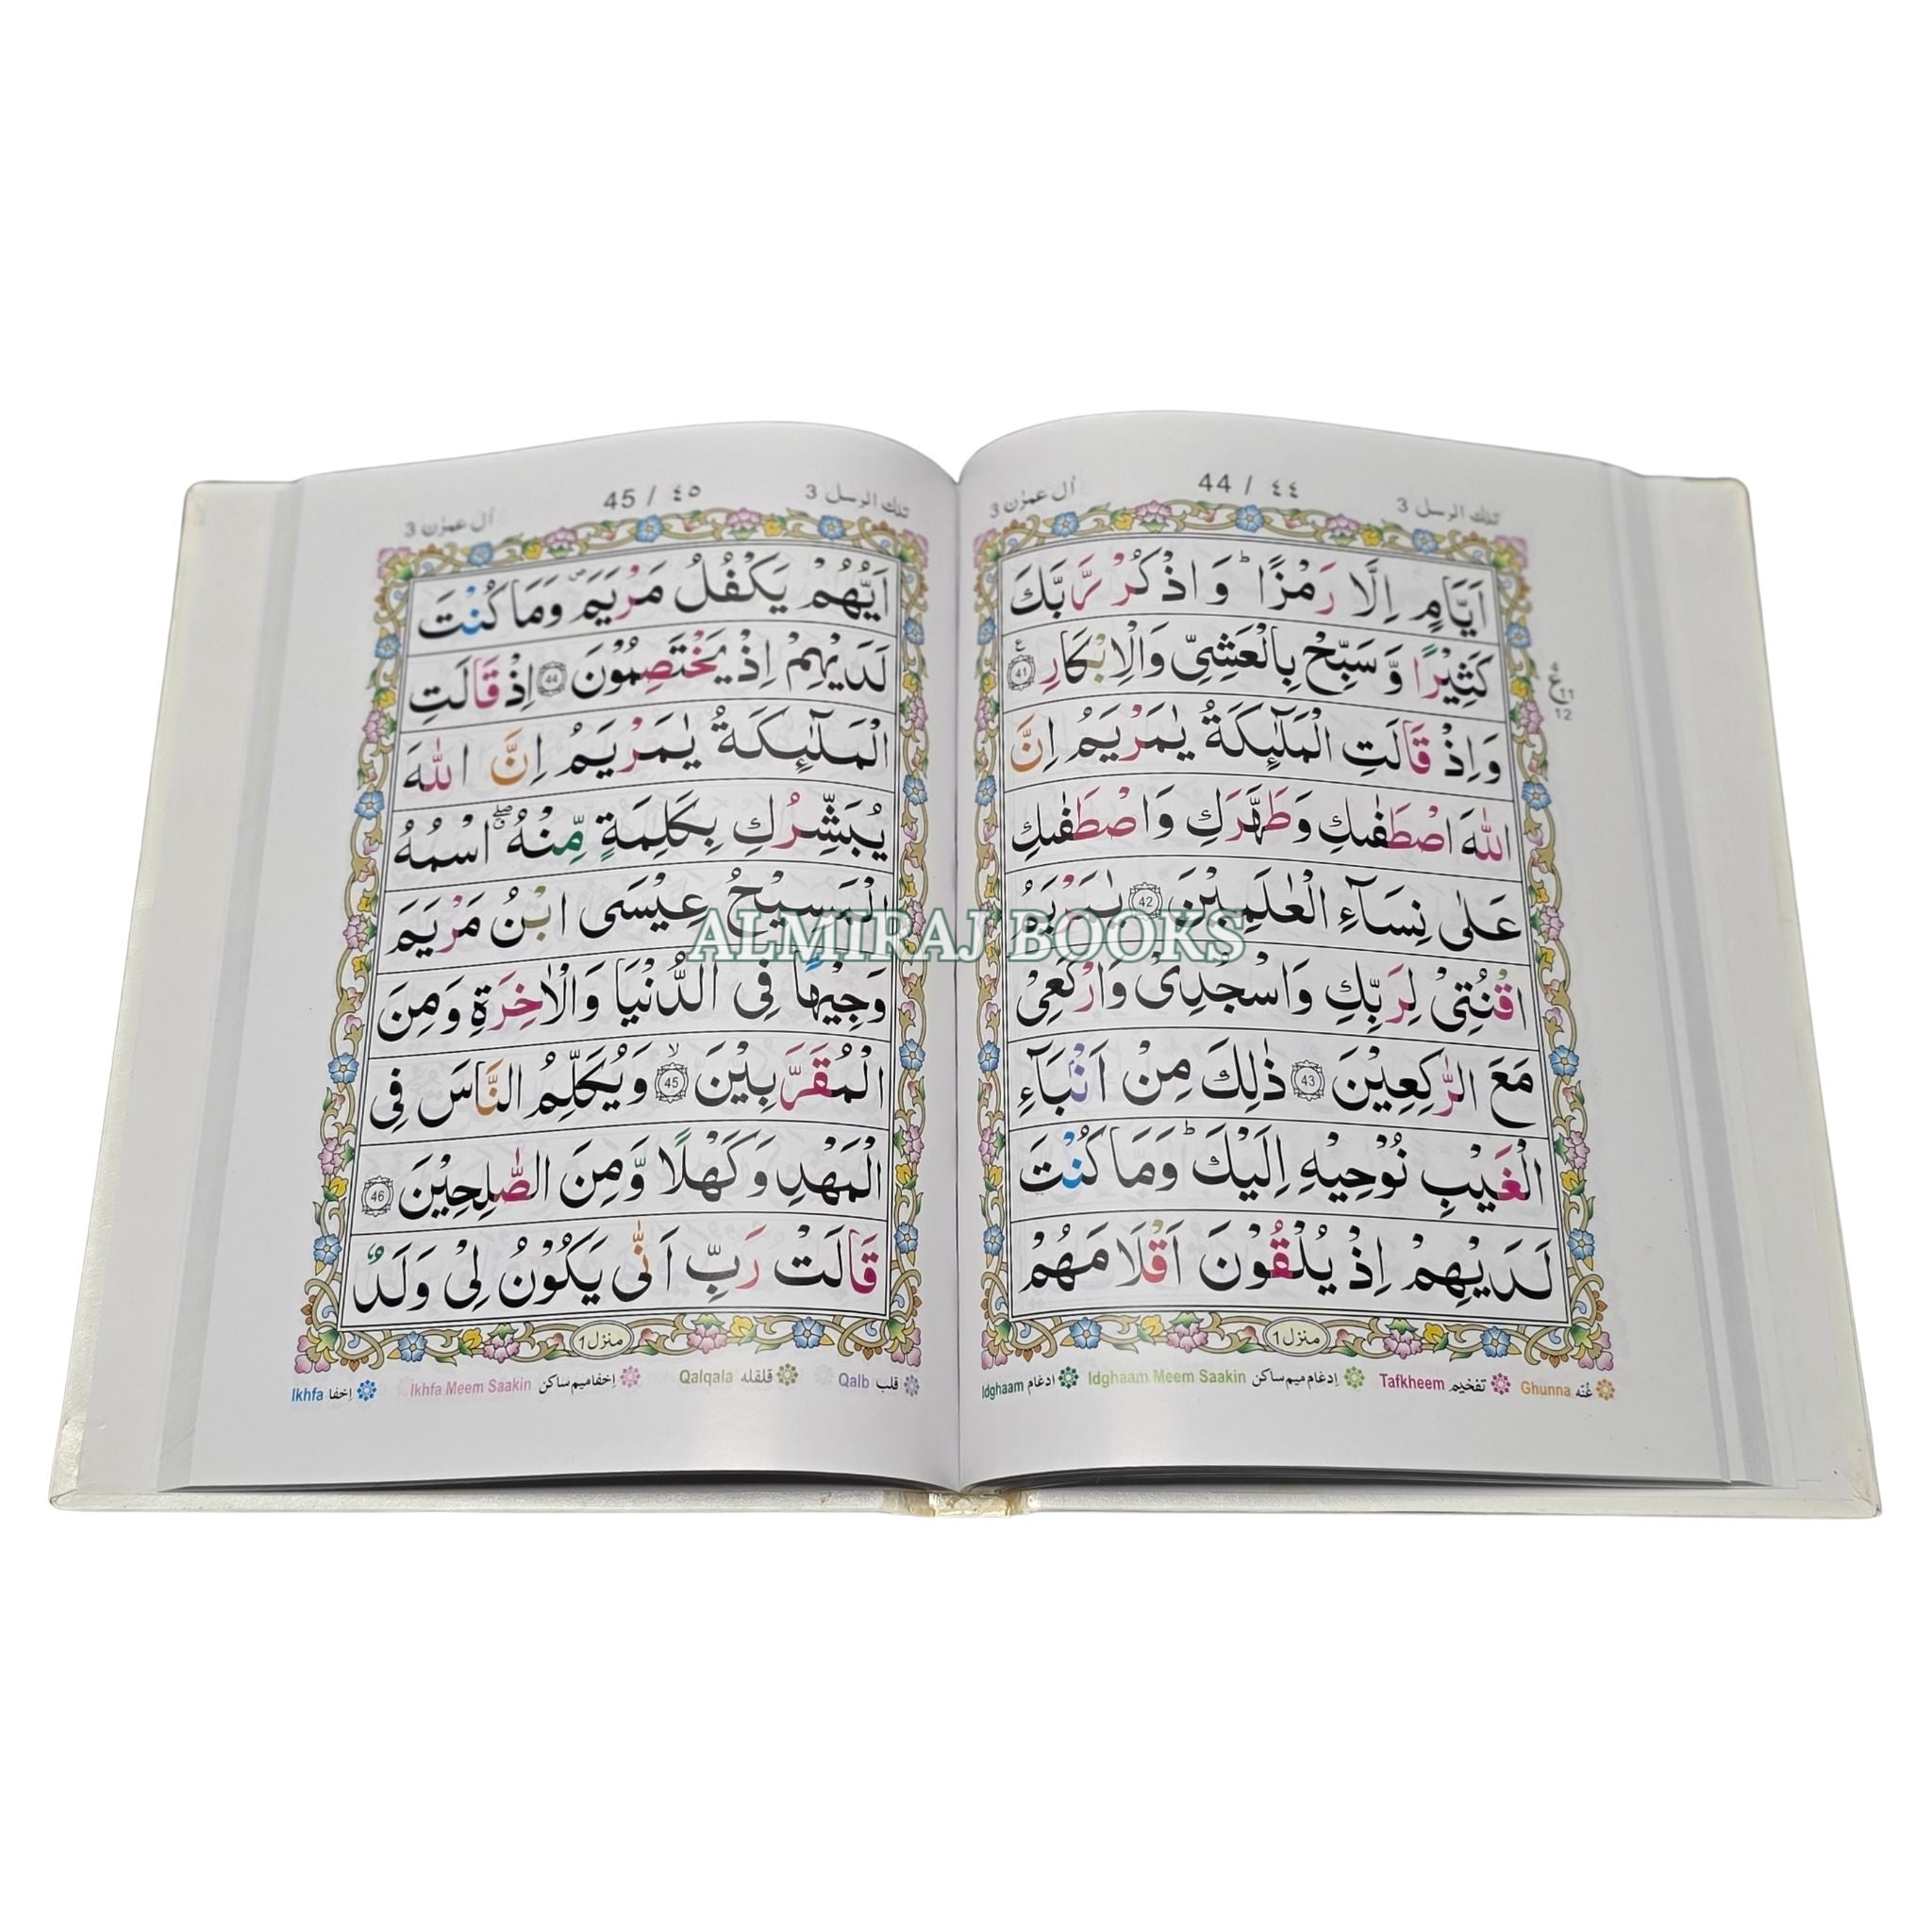 آل عمرٰن 3
44 / ٤٤
تلك الرسل 3
اَيَّامٍ اِلَّا رَمْزًا ؕ وَاذْكُرْ رَّبَّكَ
كَثِيْرًا وَّسَبِّحْ بِالْعَشِىِّ وَالْاِبْكَارِ 41 ع
4
ع 11
12
وَاِذْ قَالَتِ الْمَلٰٓئِكَةُ يٰمَرْيَمُ اِنَّ
اللّٰهَ اصْطَفٰىكِ وَطَهَّرَكِ وَاصْطَفٰىكِ
عَلٰى نِسَآءِ الْعٰلَمِيْنَ 42 يٰمَرْيَمُ
اقْنُتِىْ لِرَبِّكِ وَاسْجُدِىْ وَارْكَعِىْ
مَعَ الرّٰكِعِيْنَ 43 ذٰلِكَ مِنْ اَنْۢبَآءِ
الْغَيْبِ نُوْحِيْهِ اِلَيْكَ ؕ وَمَا كُنْتَ
لَدَيْهِمْ اِذْ يُلْقُوْنَ اَقْلَامَهُمْ
منزل 1
غُنّه Ghunna تفخيم Tafkheem اِدغام ميم ساكن Idghaam Meem Saakin ادغام Idghaam
آل عمرٰن 3
45 / ٤٥
تلك الرسل 3
اَيُّهُمْ يَكْفُلُ مَرْيَمَ ۪ وَمَا كُنْتَ
لَدَيْهِمْ اِذْ يَخْتَصِمُوْنَ 44 اِذْ قَالَتِ
الْمَلٰٓئِكَةُ يٰمَرْيَمُ اِنَّ اللّٰهَ
يُبَشِّرُكِ بِكَلِمَةٍ مِّنْهُ ۖۗ اسْمُهُ
الْمَسِيْحُ عِيْسَى ابْنُ مَرْيَمَ
وَجِيْهًا فِى الدُّنْيَا وَالْاٰخِرَةِ وَمِنَ
الْمُقَرَّبِيْنَ ۙ 45 وَيُكَلِّمُ النَّاسَ فِى
الْمَهْدِ وَكَهْلًا وَّمِنَ الصّٰلِحِيْنَ 46
قَالَتْ رَبِّ اَنّٰى يَكُوْنُ لِىْ وَلَدٌ
منزل 1
قلب Qalb قلقله Qalqala اِخفا ميم ساكن Ikhfa Meem Saakin اِخفا Ikhfa
ALMIRAJ BOOKS